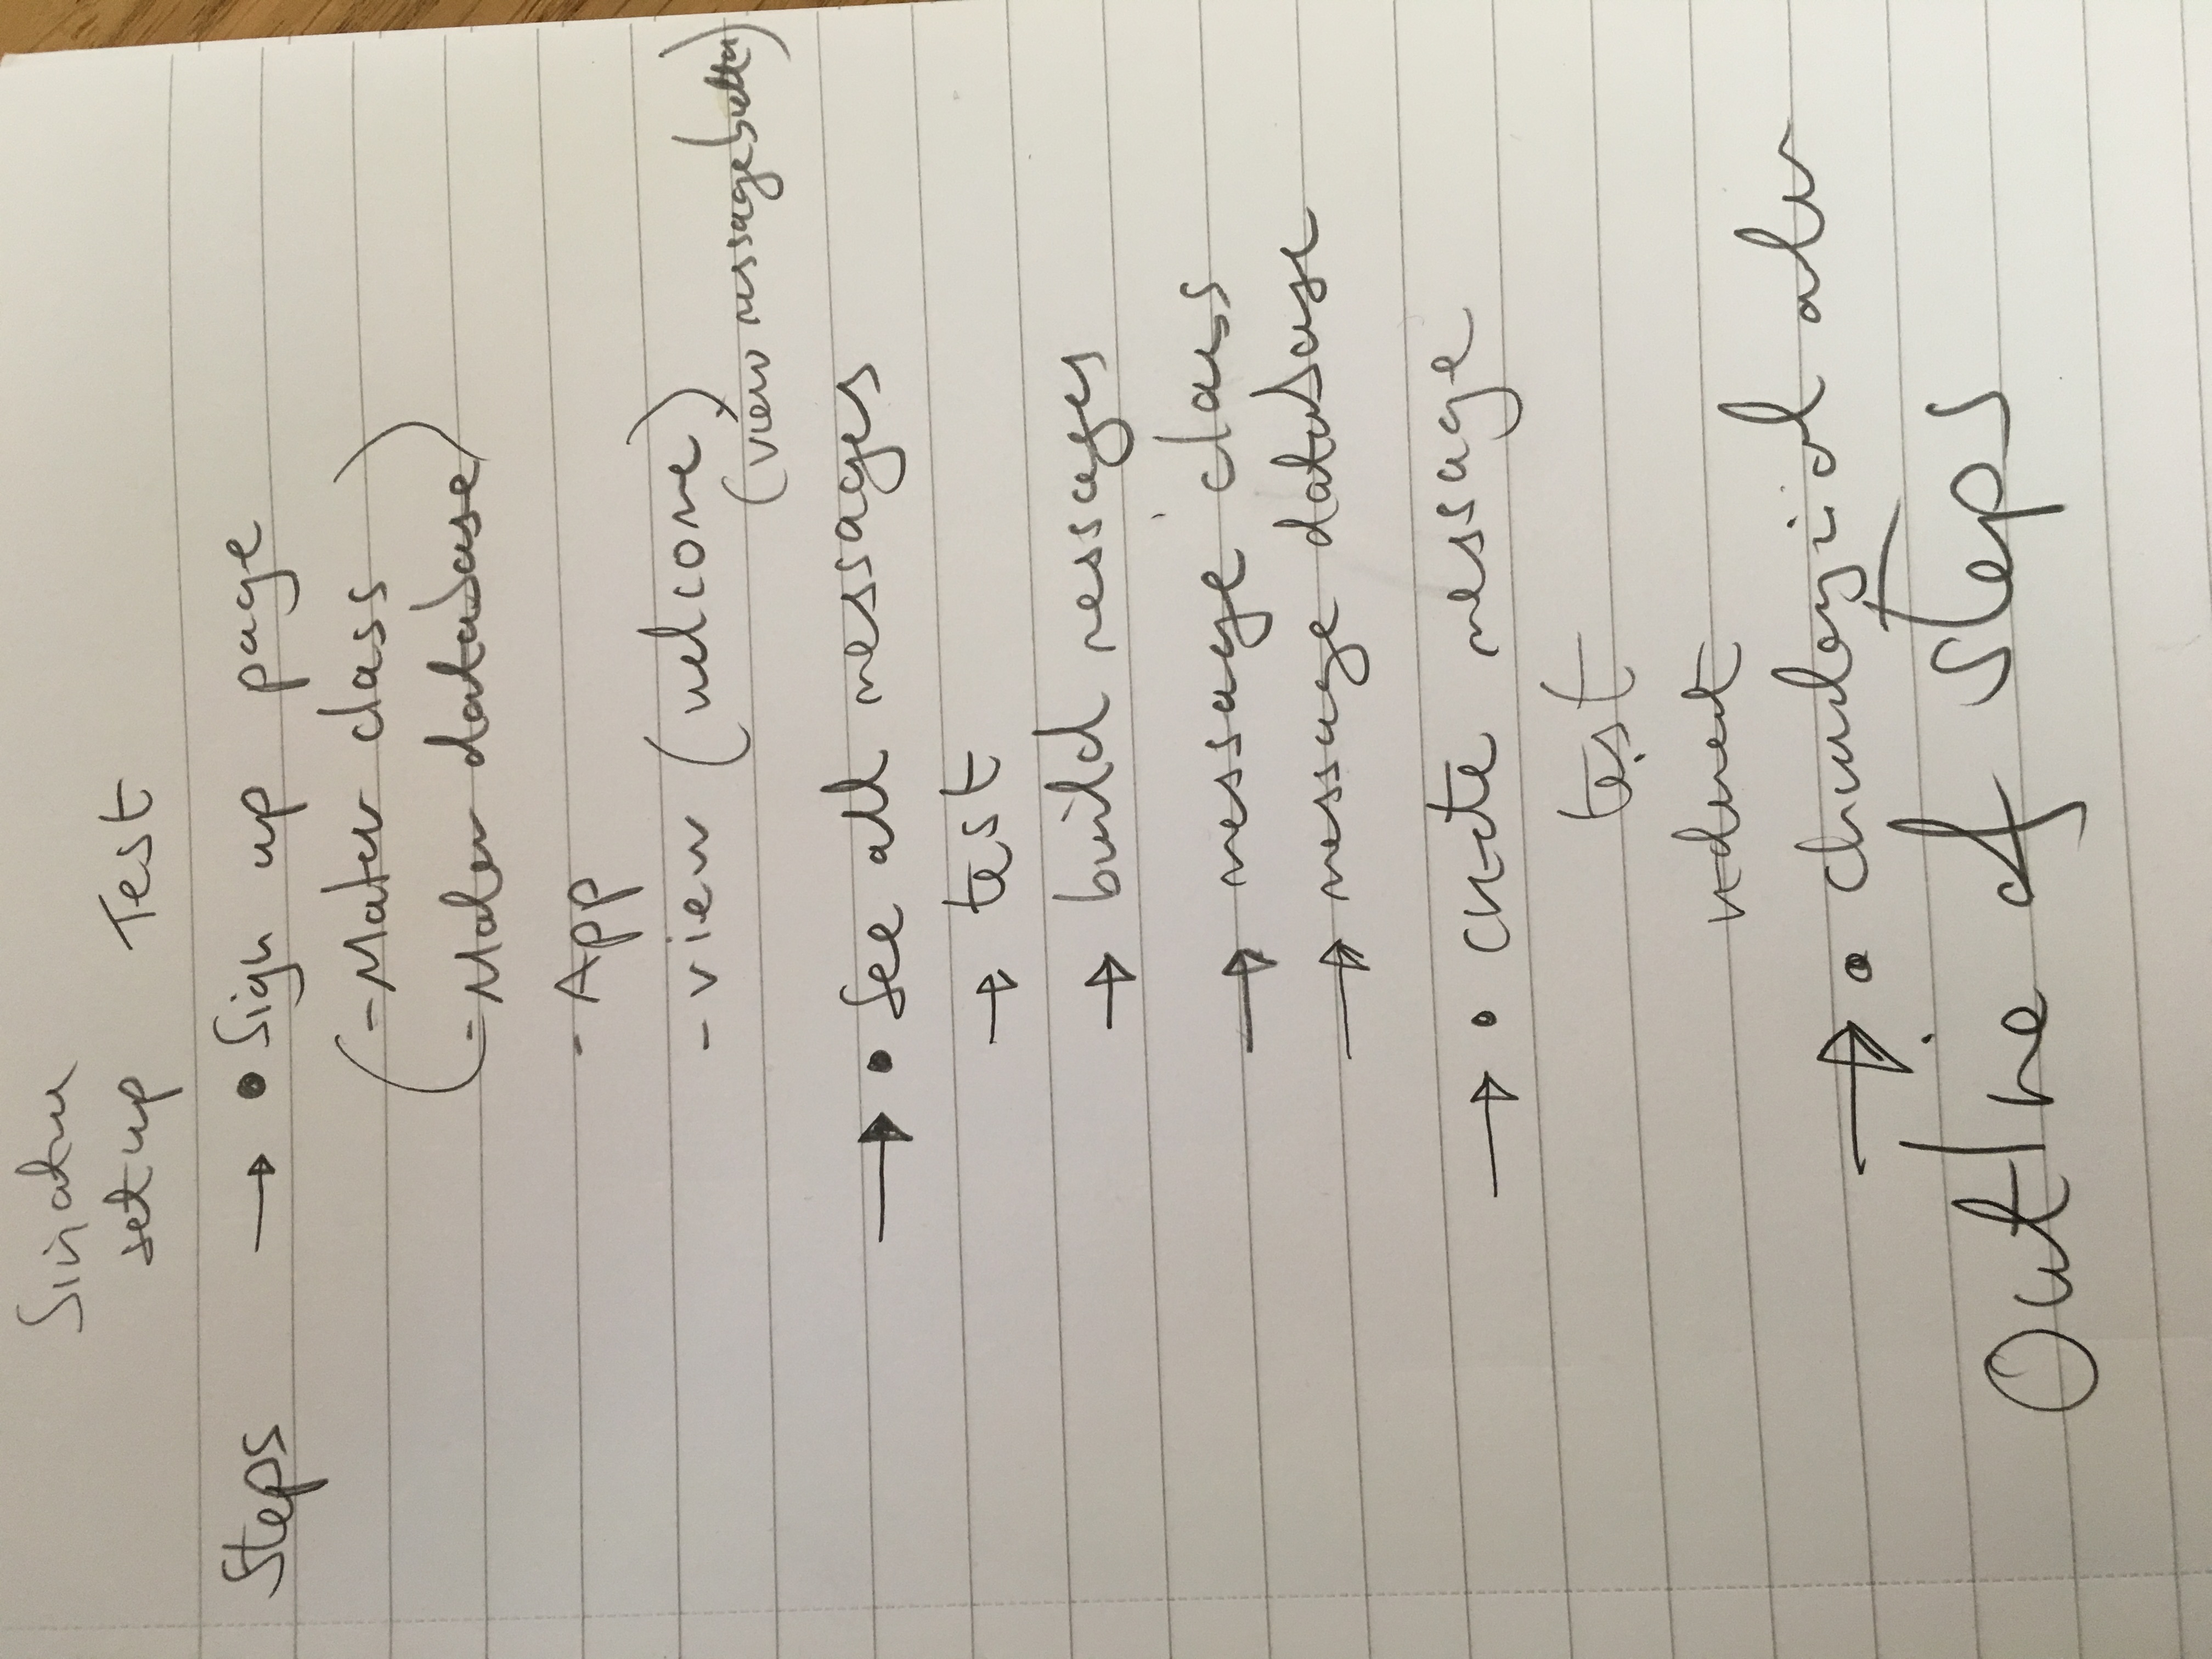 Sinatra
set up Test
Steps → • Sign up page
(- Maker class
- Maker database)
- App
- view (welcome)
(view message button)
→ • See all messages
→ test
→ build messages
→ message class
→ message database
→ • create message
test
redirect
→ • chronological order
Outline of steps